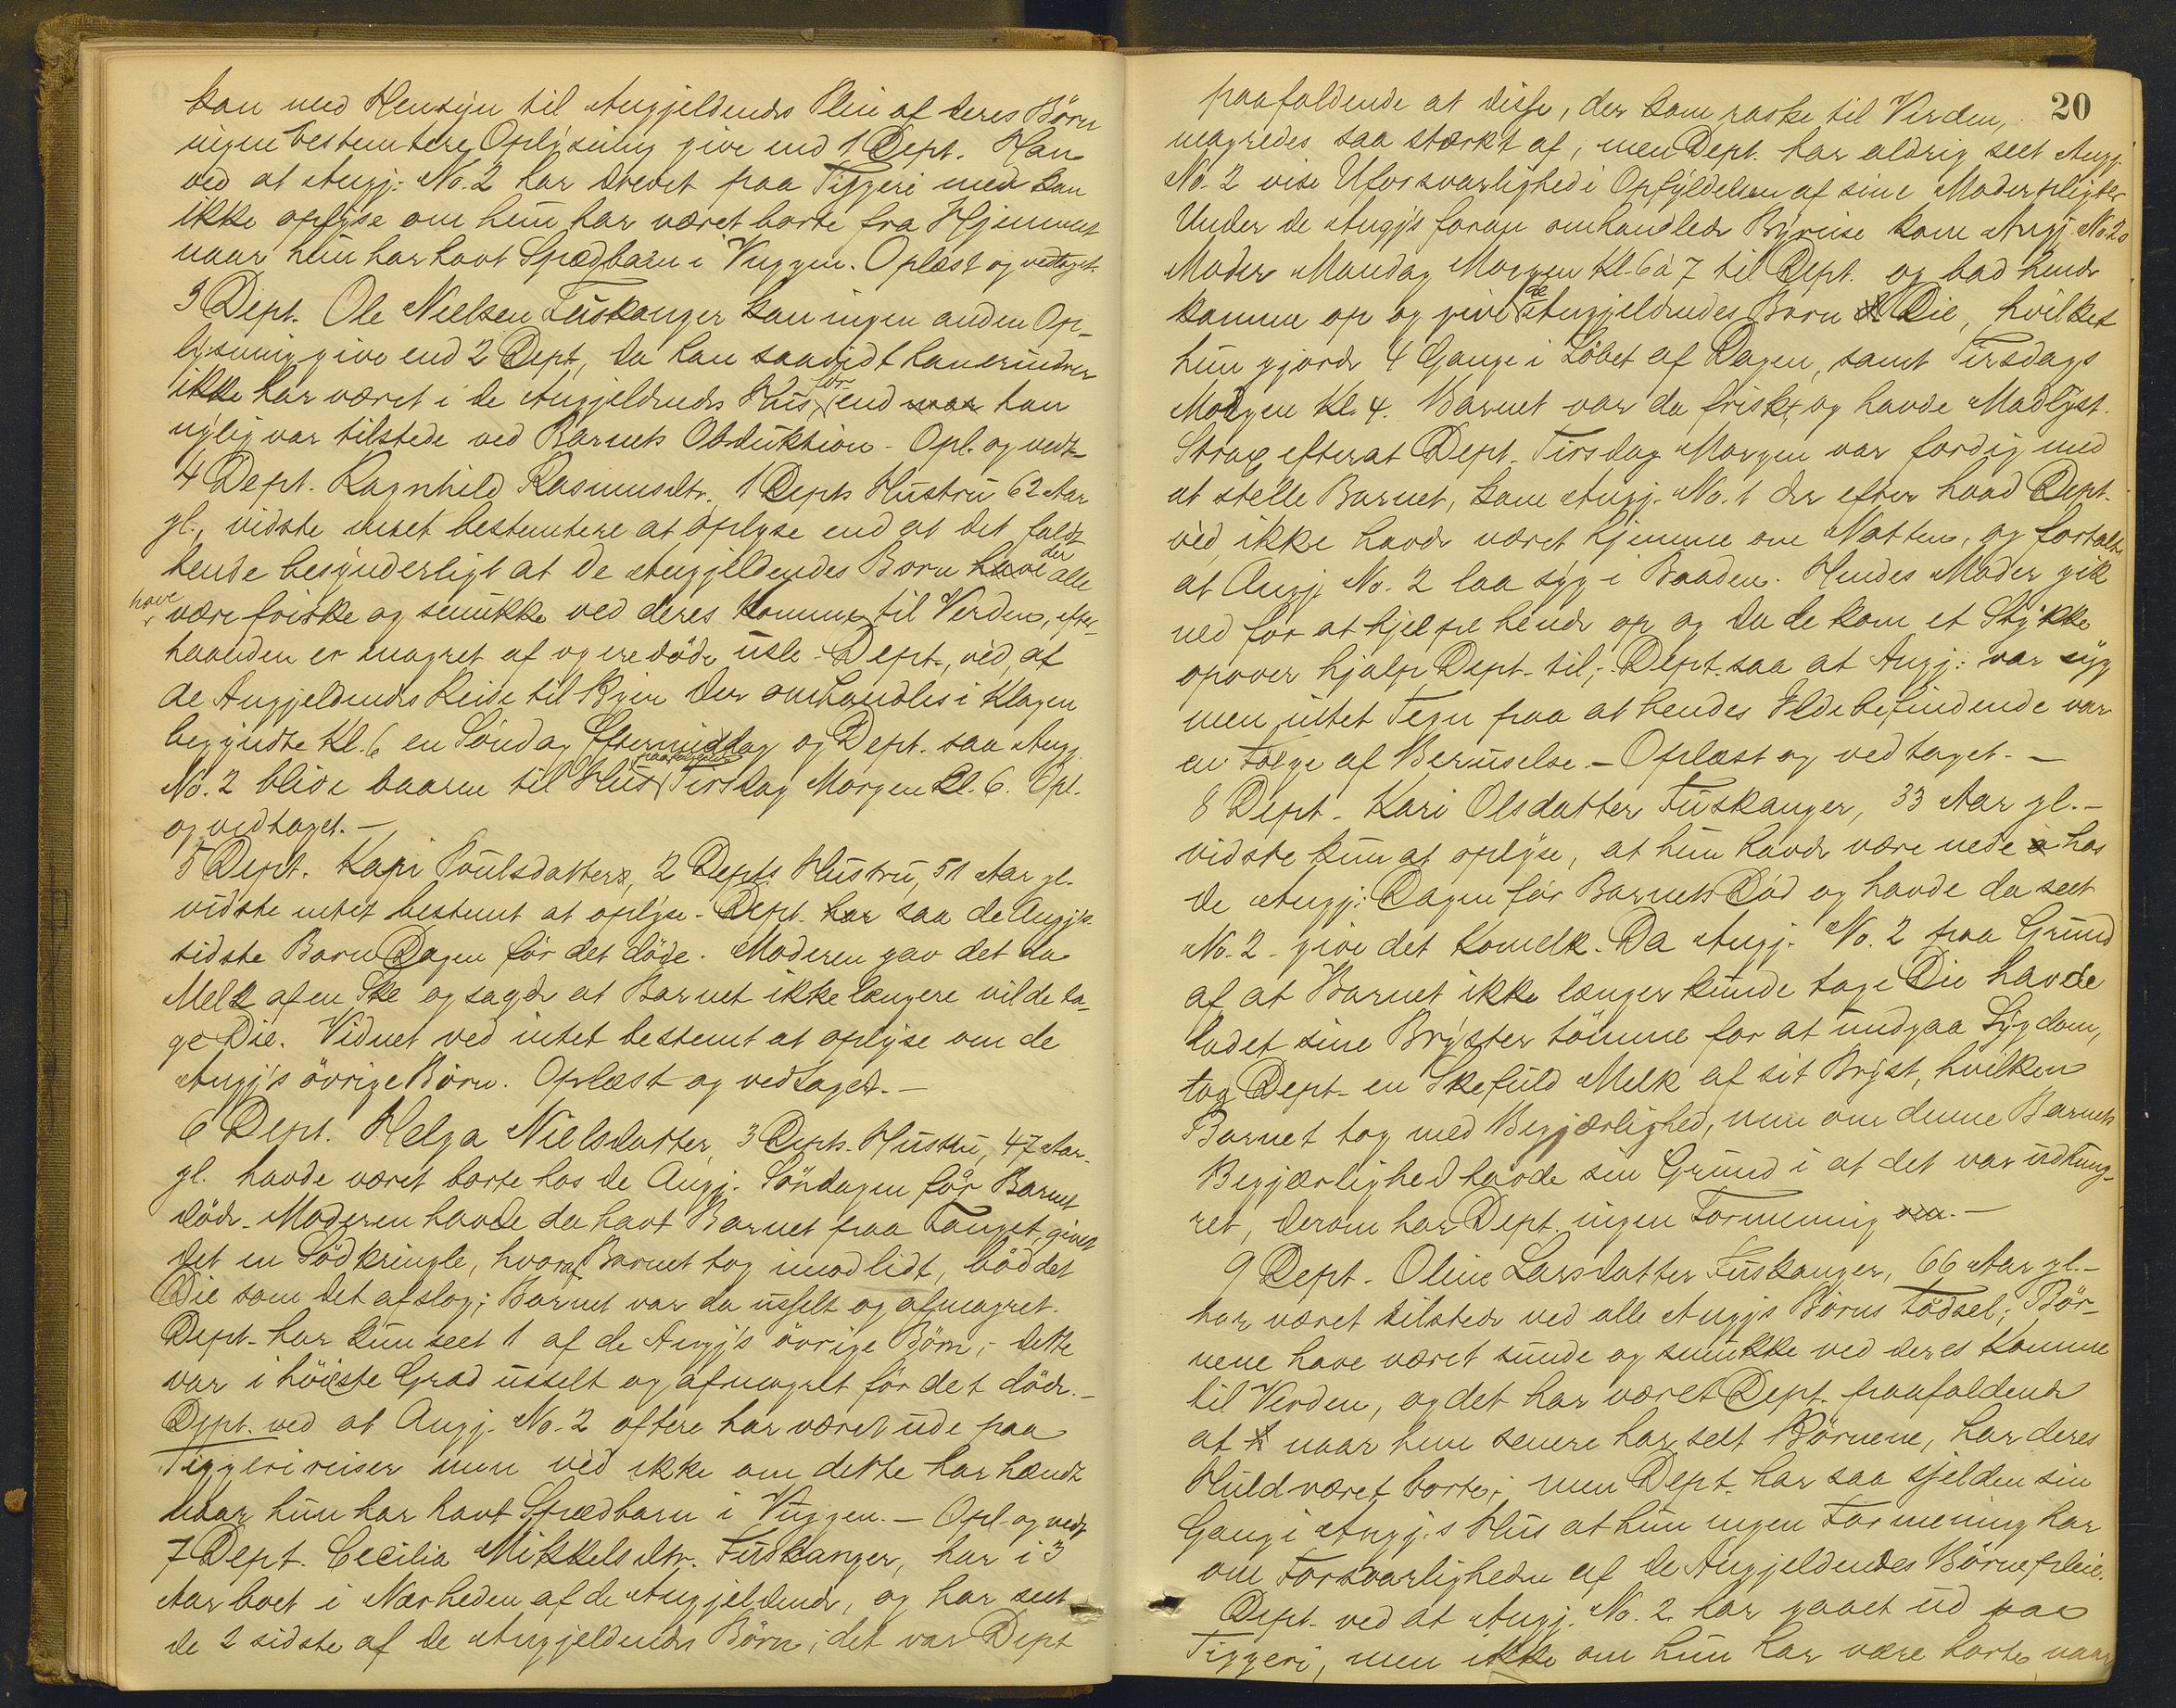 kan med Hensyn til Angjeldendes Pleie af deres Börn
ingen bestemtere Oplysning give end 1 Dept. Han
ved at Angj. No. 2 har drevet paa Tiggeri men kan
ikke oplyse om hun har været borte fra Hjemmet
naar hun har havt Spædbarn i Vuggen. Oplæst og vedtaget.
3 Dept. Ole Nielsen Fuskanger kan ingen anden Op-
lysning give end 2 Dept, da han saavidt han erindrer
ikke har været i de Angjeldendes Hus för end naar han
nylig var tilstede ved Barnets Obduktion - Opl. og vedt-
4 Dept. Ragnhild Rasmusdtr. 1 Depts Hustru 62 Aar
gl., vidste intet bestemtere at oplyse end at det faldt
hende besynderligt at de Angjeldendes Börn have der alle
have være friske og smukke ved deres Komme til Verden, efter-
haanden er magret af og ere döde usle - Dept. ved, at
de Angjeldendes Reise til Byen der omhandles i Klagen
begyndte Kl. 6 en Söndag Eftermiddag og Dept. saa Angj.
No. 2 blive baaren til Hus paafölgende Tirsdag Morgen Kl. 6. Opl.
og vedtaget. -
5 Dept. Kari Poulsdatter, 2 Depts Hustru, 51 Aar gl.
vidste intet bestemt at oplyse - Dept. har saa de Angj's
sidste Barn Dagen för det döde. Moderen gav det da
Melk af en Ske og sagde at Barnet ikke længere vilde ta-
ge Die. Vidnet ved intet bestemt at oplyse om de
Angj's övrige Börn. Oplæst og vedtaget. -
6 Dept. Helga Nielsdatter, 3 Depts. Hustru, 47 Aar
gl. havde været borte hos de Angj. Söndagen för Barnet
döde. Moderen havde da havt Barnet paa Fanget, givet
det en Södkringle, hvoraf Barnet tog imod lidt, böd det
Die som det afslog; Barnet var da usselt og afmagret.
Dept. har kun seet 1 af de Angj's övrige Börn; dette
var i höieste Grad usselt og afmagret för det döde. -
Dept. ved at Angj. No. 2 oftere har været ude paa
Tiggerireiser men ved ikke om dette har hændt
naar hun har havt Spædbarn i Vuggen. - Opl. og vedt
7 Dept. Cecilia Mikkelsdtr. Fuskanger, har i 3
Aar boet i Nærheden af de Angjeldende, og har seet
de 2 sidste af de Angjeldendes Börn; det var Dept
20
paafaldende at disse, der kom raske til Verden,
magredes saa stærkt af, men Dept. har aldrig seet Angj.
No. 2 vise Uforsvarlighed i Opfyldelsen af sine Moderpligter
Under de Angj's foran omhandlede Byreise kom Angj. No. 2s
Moder Mandag Morgen Kl. 6 à 7 til Dept. og bad hende
komme op og give de Angjeldendes Barn Die, hvilket
hun gjorde 4 Gange i Löbet af Dagen, samt Tirsdags
Morgen Kl. 4. Barnet var da friskt og havde Madlyst.
Strax efterat Dept. Tirsdag Morgen var færdig med
at stelle Barnet, kom Angj. No. 1 der efter hvad Dept.
ved, ikke havde været hjemme om Natten, og fortalte
at Angj. No. 2 laa syg i Baaden. Hendes Moder gik
ned for at hjelpe hende op og da de kom et Stykke
opover hjalp Dept. til; Dept. saa at Angj. var syg
men intet Tegn paa at hendes Ildebefindende var
en Fölge af Beruselse. - Oplæst og vedtaget. -
8 Dept. Kari Olsdatter Fuskanger, 33 Aar gl. -
vidste kun at oplyse, at hun havde være nede hos
de Angj. Dagen för Barnets Död og havde da seet
No. 2 give det Komelk. Da Angj. No. 2 paa Grund
af at Barnet ikke længer kunde tage Die havde
ladet sine Bryster tömme for at undgaa Sygdom,
tog Dept. en Skefuld Melk af sit Bryst, hvilken
Barnet tog med Begjærlighed, men om denne Barnets
Begjærlighed havde sin Grund i at det var udhung-
ret, derom har Dept. ingen Formening om. -
9 Dept. Oline Larsdatter Fuskanger, 66 Aar gl. -
har været tilstede ved alle Angj's Börns Födsel; Bör-
nene have været sunde og smukke ved deres Komme
til Verden, og det har været Dept. paafaldende
at naar hun senere har seet Börnene, har deres
Huld været borte; men Dept. har saa sjelden sin
Gang i Angj.s Hus at hun ingen Formening har
om Forsvarligheden af de Angjeldendes Börnepleie.
Dept. ved at Angj. No. 2 har gaaet ud paa
Tiggeri, men ikke om hun har være borte naar